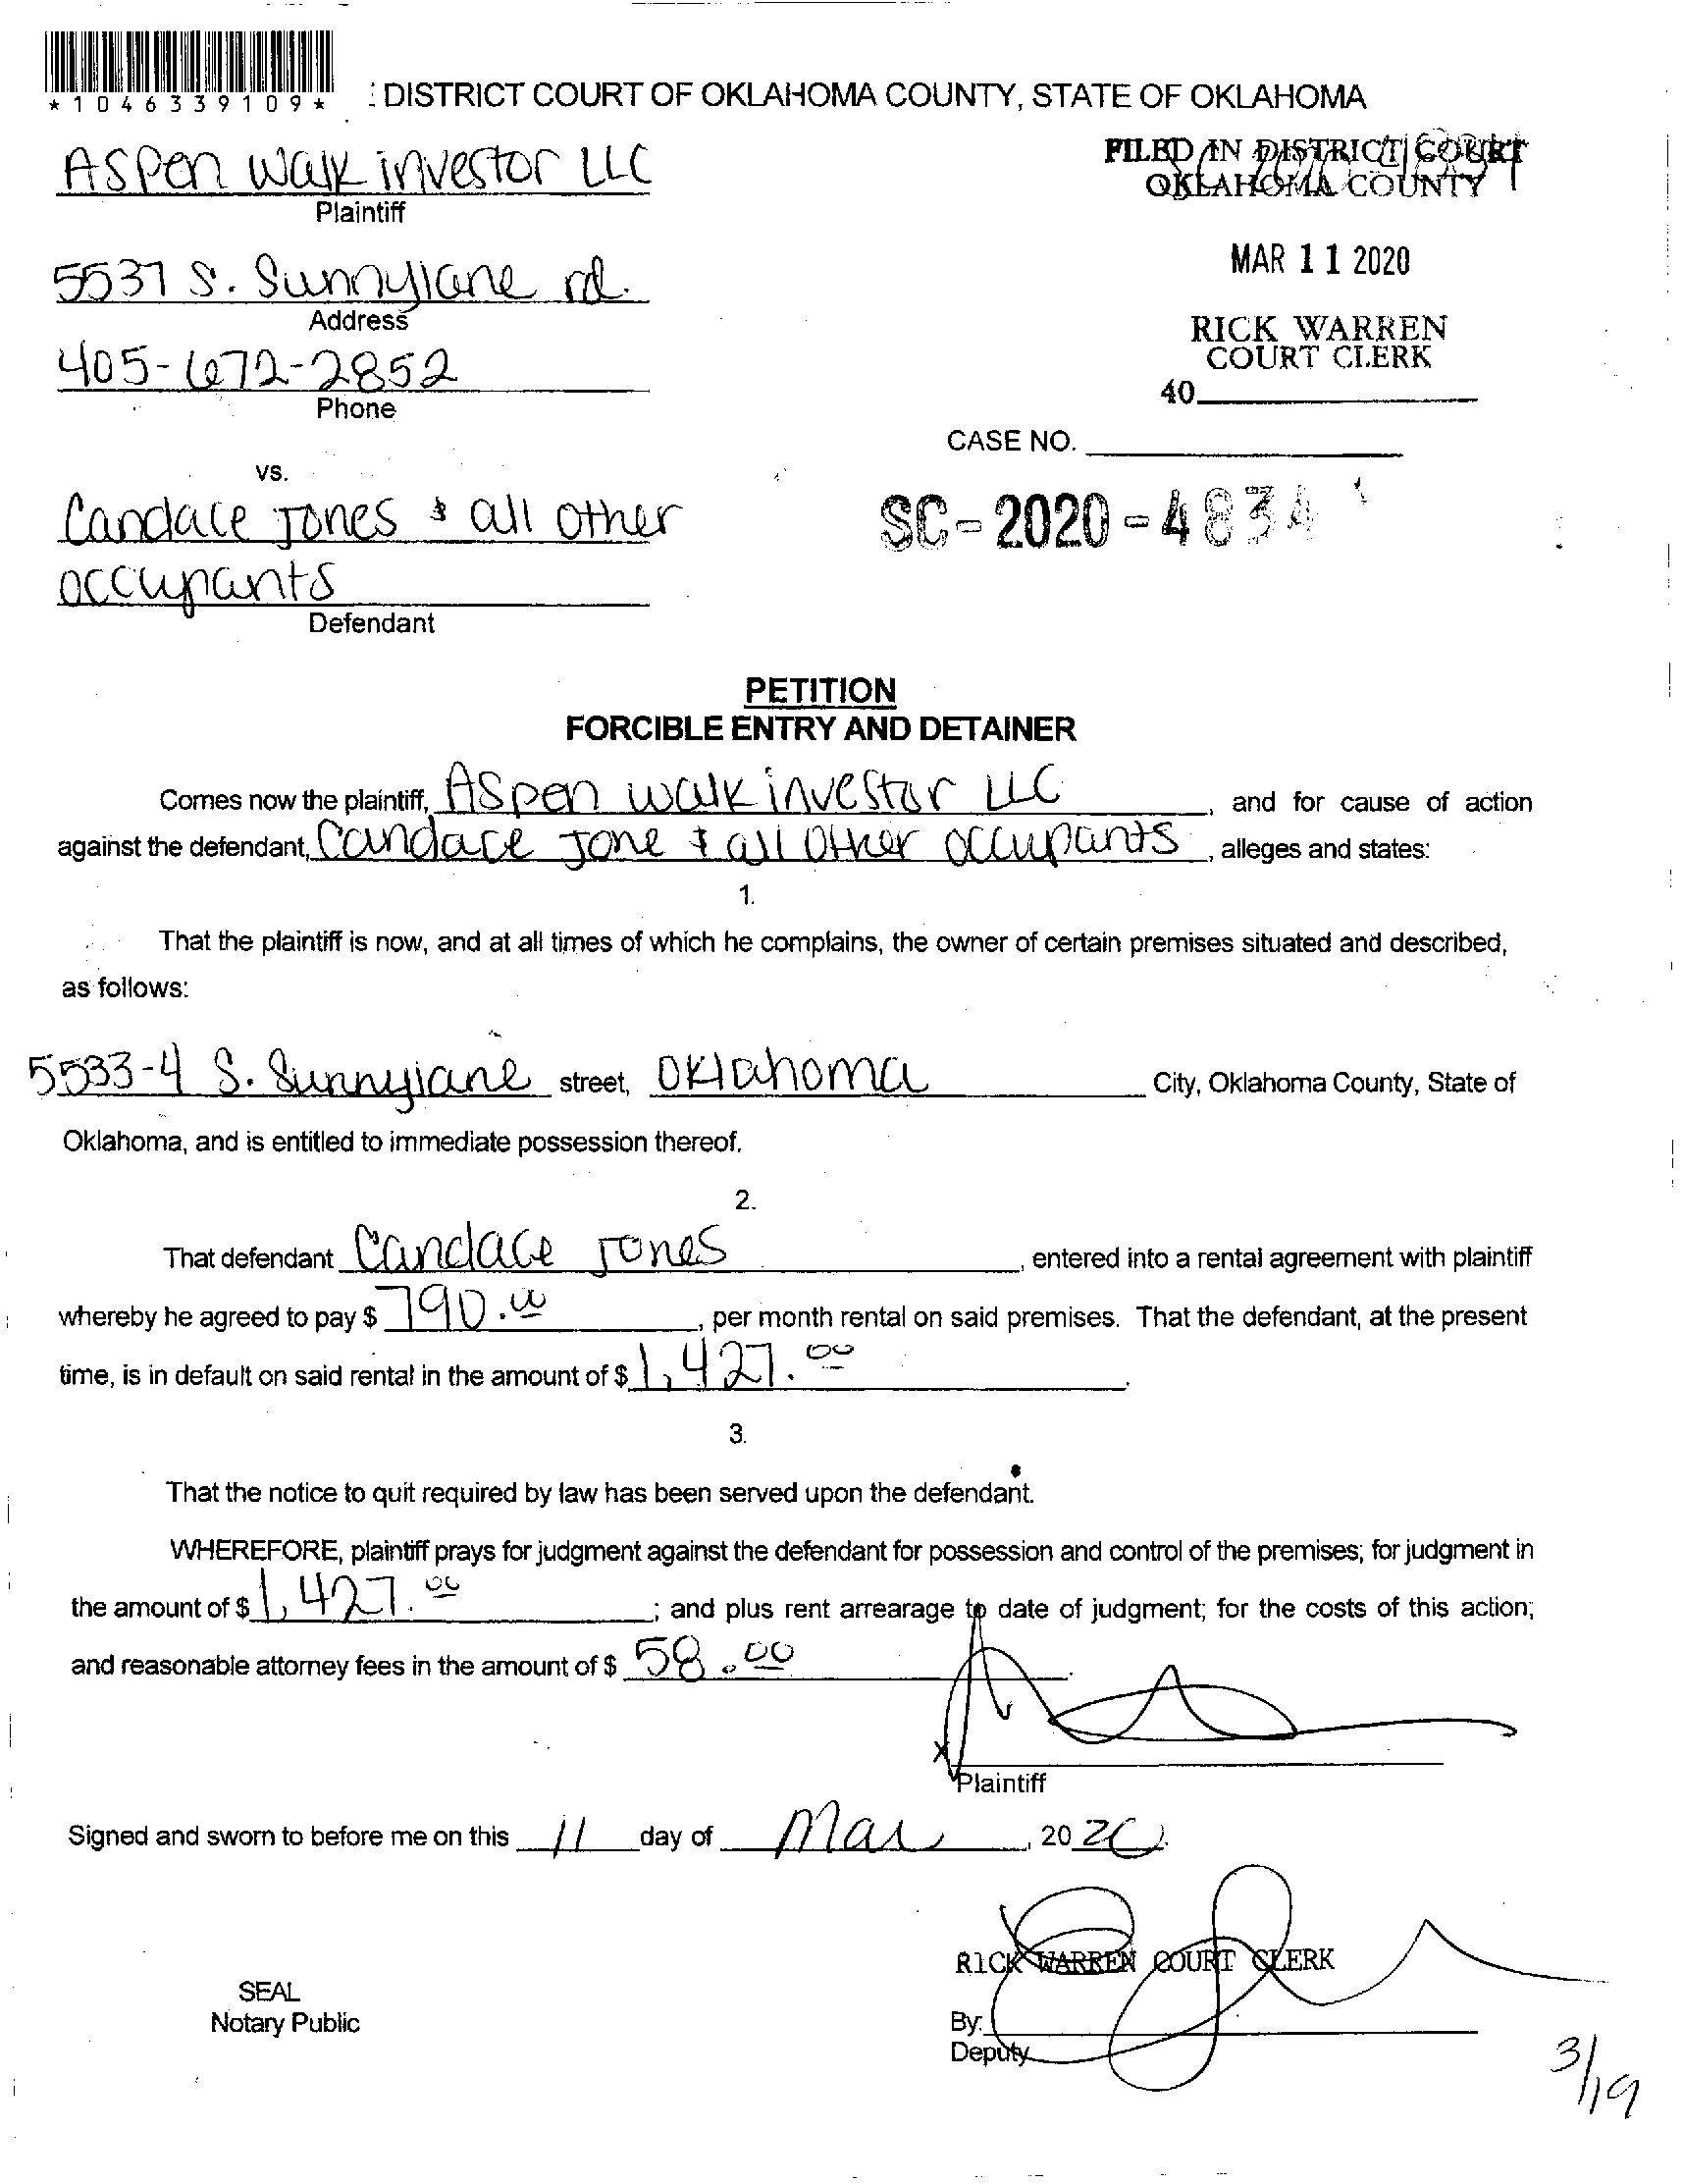 *1046339109*
DISTRICT COURT OF OKLAHOMA COUNTY, STATE OF OKLAHOMA
Aspen Walk investor LLC
Plaintiff
FILED IN DISTRICT COURT
OKLAHOMA COUNTY
5537 S. Sunnylane rd.
Address
MAR 11 2020
405-672-2852
Phone
RICK WARREN
COURT CLERK
40
CASE NO.
vs.
Candace Jones & all other
occupants
Defendant
SC-2020-4834
PETITION
FORCIBLE ENTRY AND DETAINER
Comes now the plaintiff, Aspen walk investor LLC, and for cause of action
against the defendant, Candace Jone & all other occupants, alleges and states:
1.
That the plaintiff is now, and at all times of which he complains, the owner of certain premises situated and described,
as follows:
5533-4 S. Sunnylane street, Oklahoma City, Oklahoma County, State of
Oklahoma, and is entitled to immediate possession thereof.
2.
That defendant Candace Jones, entered into a rental agreement with plaintiff
whereby he agreed to pay $ 790.00, per month rental on said premises. That the defendant, at the present
time, is in default on said rental in the amount of $ 1,427.00.
3.
That the notice to quit required by law has been served upon the defendant.
WHEREFORE, plaintiff prays for judgment against the defendant for possession and control of the premises; for judgment in
the amount of $ 1,427.00; and plus rent arrearage to date of judgment; for the costs of this action;
and reasonable attorney fees in the amount of $ 58.00.
x
Plaintiff
Signed and sworn to before me on this 11 day of Mar, 2020.
RICK WARREN COURT CLERK
SEAL
Notary Public
By:
Deputy
3/19